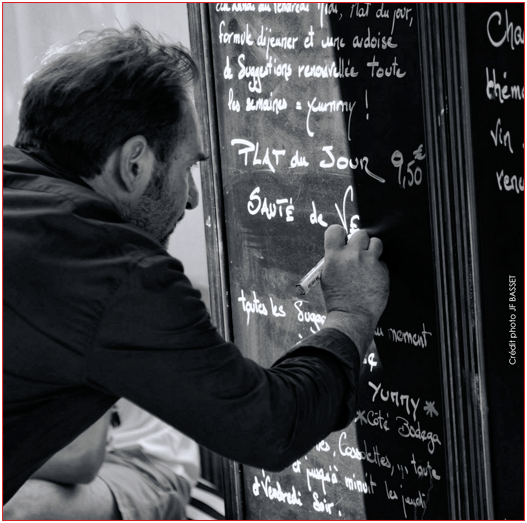 du Lundi au Vendredi Midi, Plat du jour,
formule déjeuner et une ardoise
de Suggestions renouvellée toute
les semaines = yummy !
PLAT du Jour 9,50€
SAUTÉ de VE
toutes les Sugge
du moment
YUMMY
*Côté Bodega*
Cassolettes, ... toute
et jusqu'à minuit les jeudi
& Vendredi Soir.
Cha
théma
vin
renou
Crédit photo JF BASSET